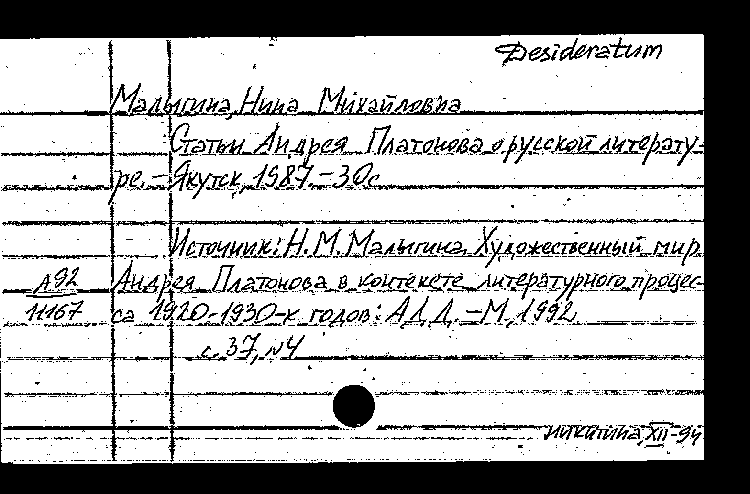 Desideratum
Малыгина, Нина Михайловна
Статьи Андрея Платонова о русской литерату-
ре. – Якутск, 1987. – 30с
Источник: Н. М. Малыгина. Художественный мир
А92 Андрея Платонова в контексте литературного процес-
11167 са 1920-1930-х годов: АДД. – М, 1992
с. 37, №4
Никитина, XII-94